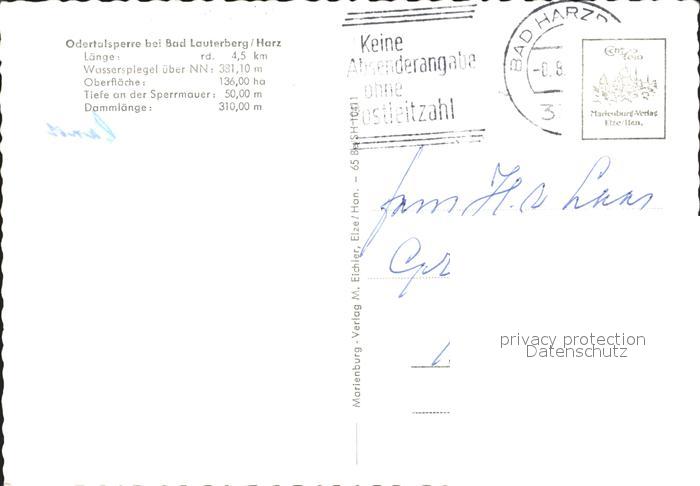 Odertalsperre bei Bad Lauterberg/Harz
Länge: rd. 4,5 km
Wasserspiegel über NN: 381,10 m
Oberfläche: 136,00 ha
Tiefe an der Sperrmauer: 50,00 m
Dammlänge: 310,00 m
Keine
Absenderangabe
ohne
Postleitzahl
BAD HARZB
-0.8.
3
Marienburg-Verlag
Elze/Han.
Marienburg - Verlag M. Eichler, Elze/Han. – 65
Fam H.
privacy protection
Datenschutz